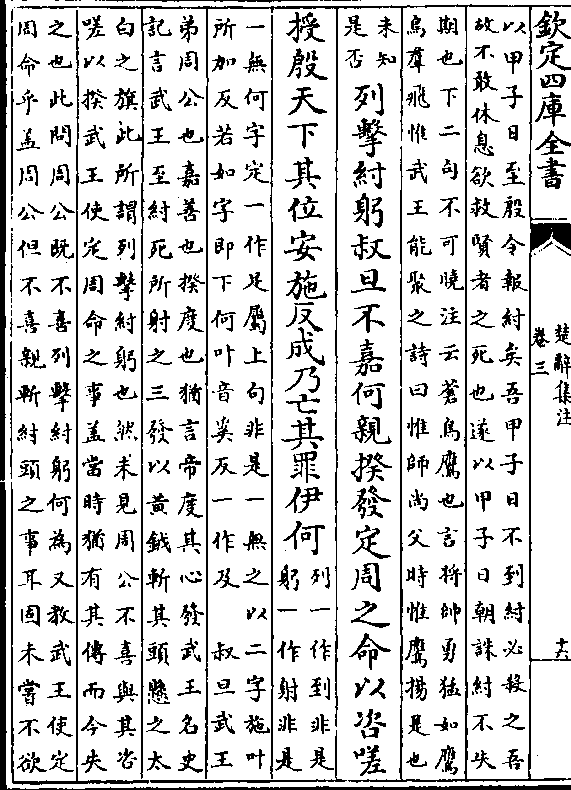 欽定四庫全書
楚辭集注
卷三
十六
以甲子日至殷令報紂矣吾甲子日不到紂必殺之吾
故不敢休息欲救賢者之死也遂以甲子日朝誅紂不失
期也下二句不可曉注云蒼鳥鷹也言將帥勇猛如鷹
鳥羣飛惟武王能聚之詩曰惟師尚父時惟鷹揚是也
未知
是否
列擊紂躬叔旦不嘉何親揆發定周之命以咨嗟
授殷天下其位安施反成乃亡其罪伊何
列一作到非是
躬一作射非是
一無何字定一作足屬上句非是一無之以二字施叶
所加反若如字即下何叶音奚反一作及 叔旦武王
弟周公也嘉善也揆度也猶言帝度其心發武王名史
記言武王至紂死所射之三發以黃鉞斬其頭懸之太
白之旗此所謂列擊紂躬也然未見周公不喜與其咨
嗟以揆武王使定周命之事盖當時猶有其傳而今失
之也此問周公既不喜列擊紂躬何為又教武王使定
周命乎盖周公但不喜親斬紂頭之事耳固未嘗不欲